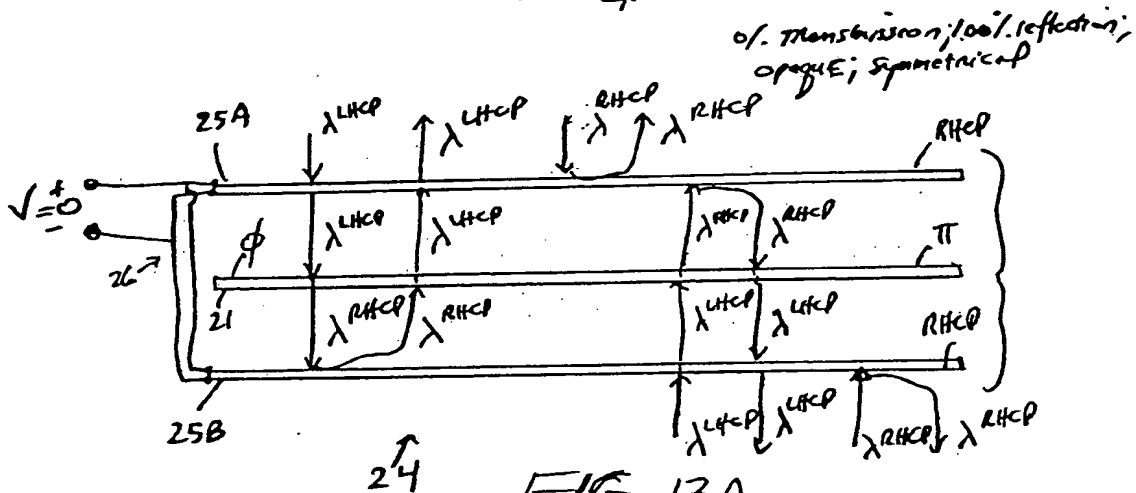 0% Transmission; 100% reflection;
opaque; symmetrical
25A
λLHCP
λLHCP
λRHCP
λRHCP
RHCP
V=0
+
-
ϕ
λLHCP
λLHCP
λRHCP
λRHCP
π
26
21
λRHCP
λRHCP
λLHCP
λLHCP
RHCP
25B
λLHCP
λLHCP
λRHCP
λRHCP
24